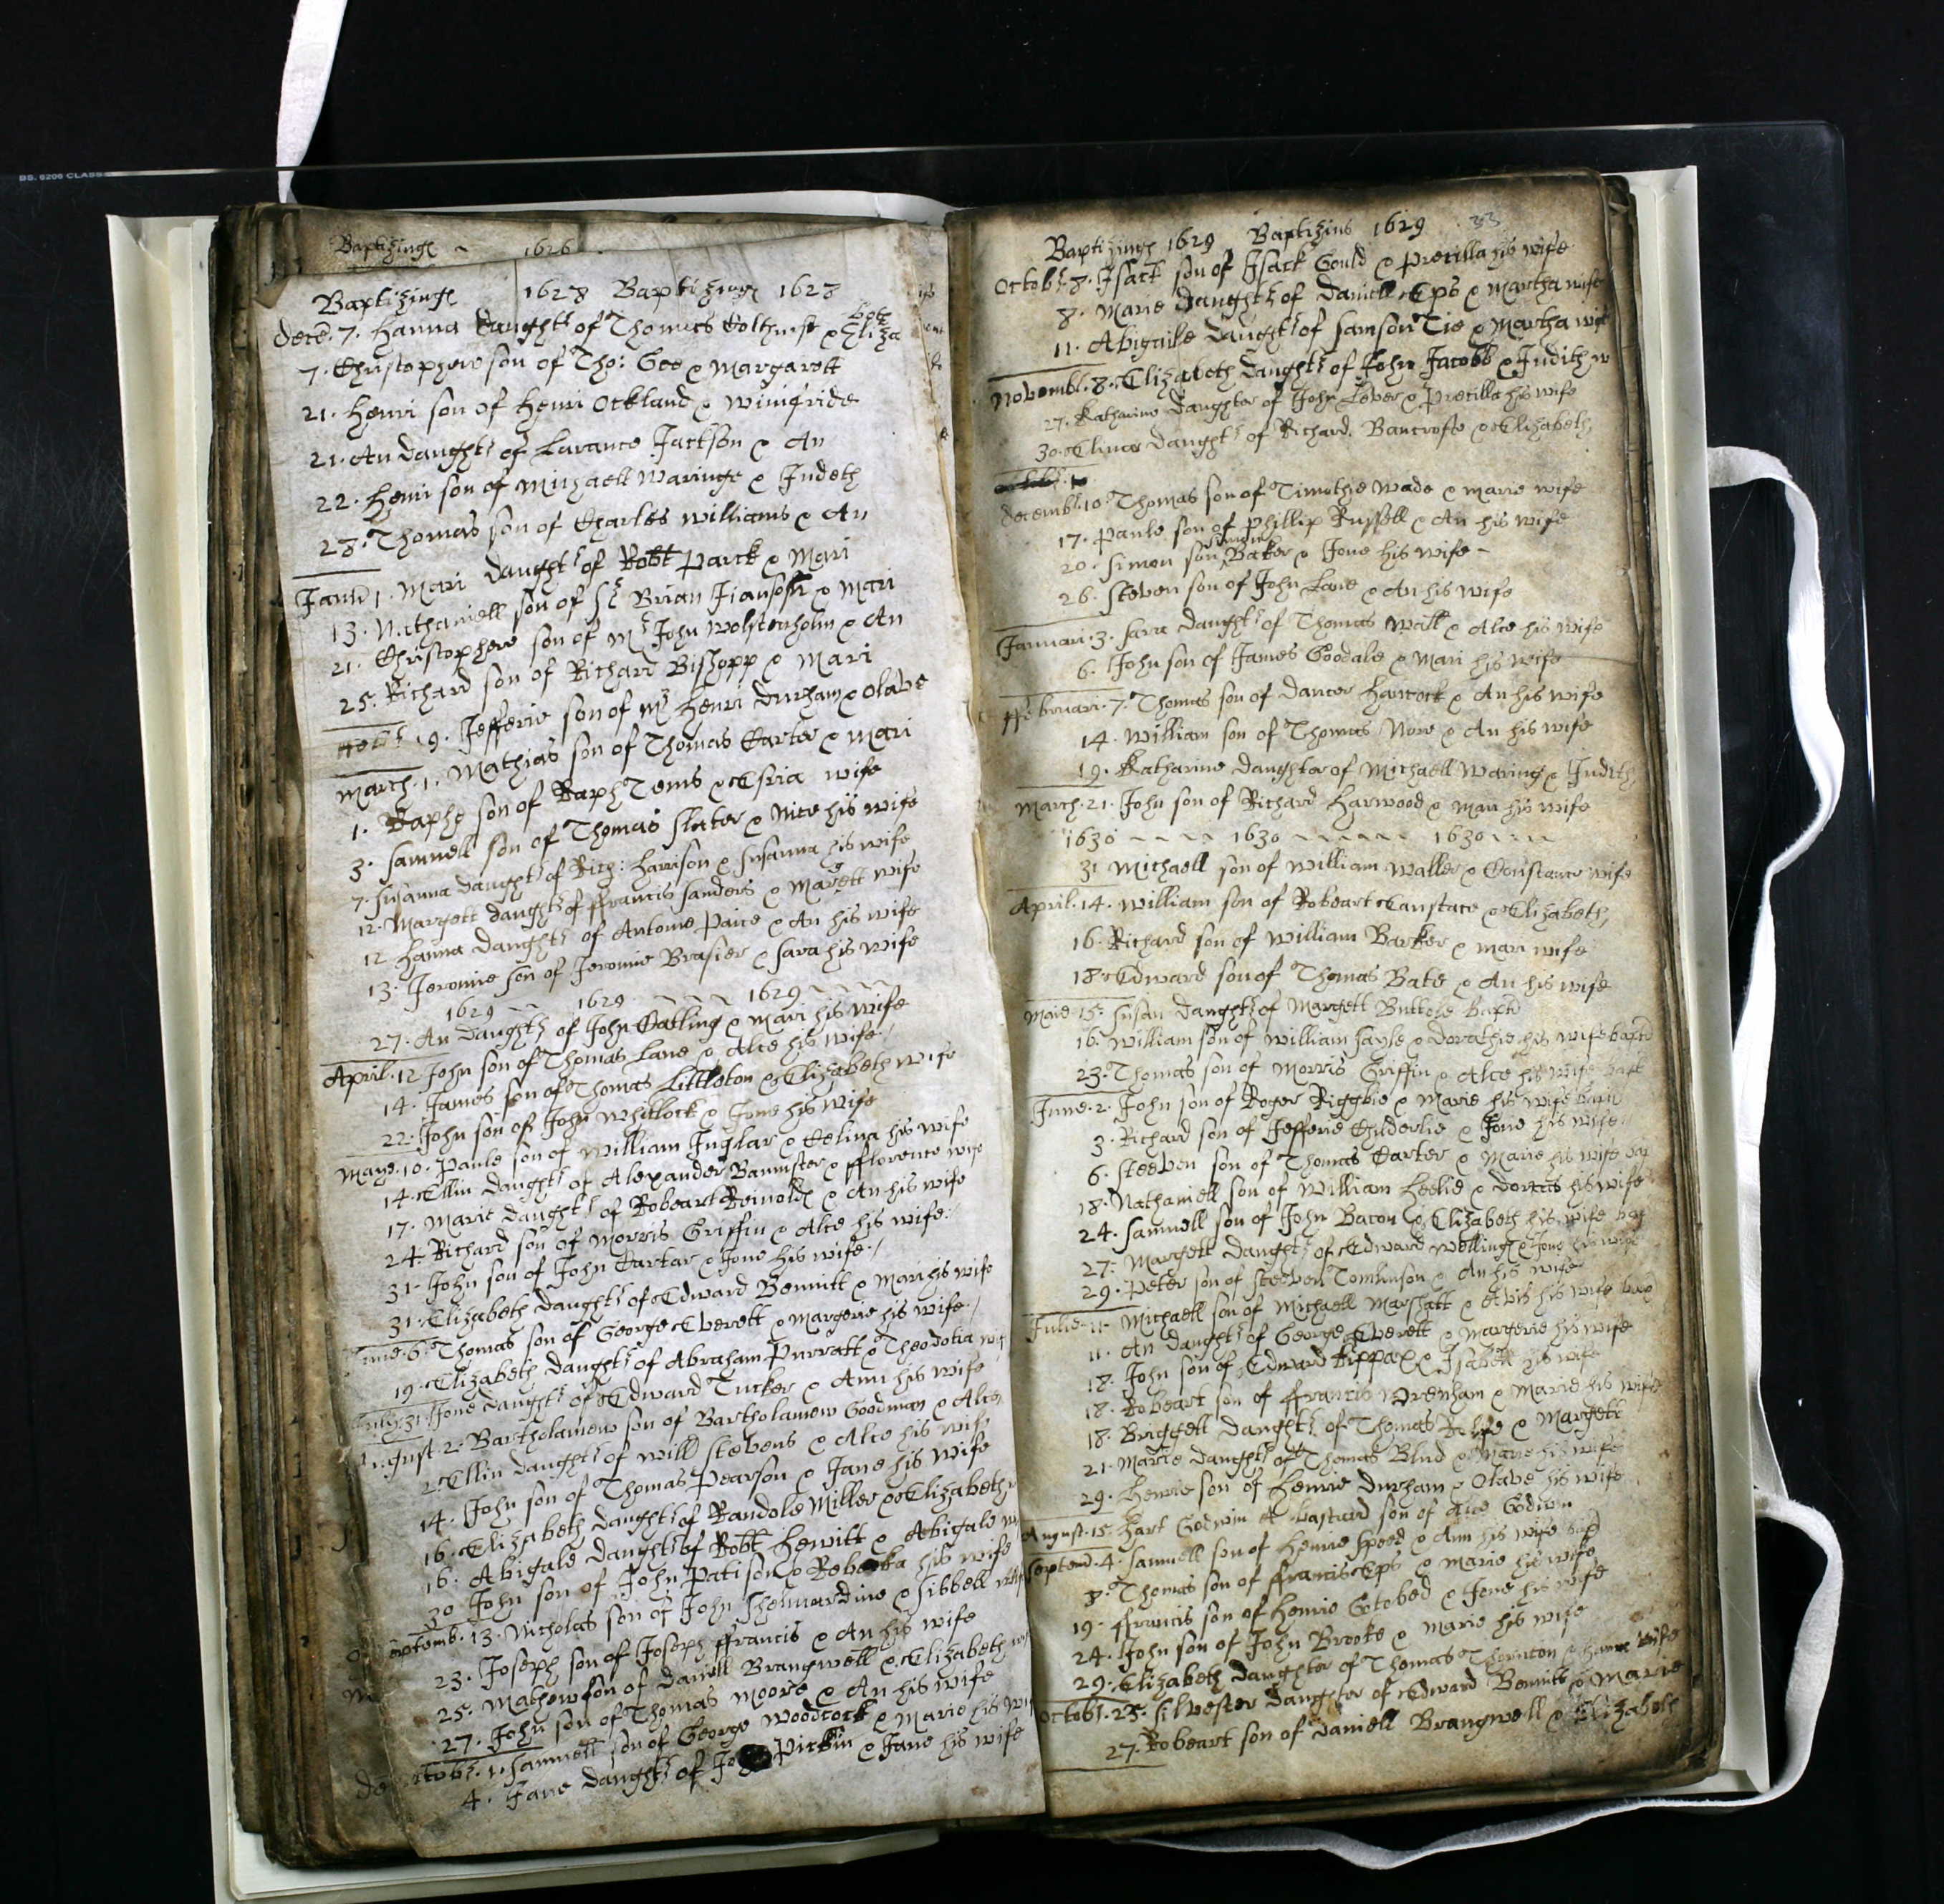 BS. 6206 CLASS
Baptizinges 1626
Baptizinges 1628 Baptizinges 1628
decē. 7. Hanna daughtr of Thomas Colthurst & Eliza beth
7. Christophere son of Tho: Gee & Margarett
21. Henri son of Henri Ockland & Winifride
21. An daughtr of Larance Jackson & An
22. Henri son of Michaell Waringe & Judeth
28. Thomas son of Charles Williams & An
Januā 1. Mari daughtr of Robt Parck & Mari
13. Nathaniell son of Sr Brian & Mari
21. Christophere son of Mr John Wolstenholm & An
25. Richard son of Richard Bishopp & Mari
19. Jefferie son of Mr Henri Durham & Olave
March. 1. Mathias son of Thomas Carter & Mari
1. Raphe son of Raph Tems & wife
3. Samuell son of Thomas Slater & his wife
7. Susanna daughtr of Rich: Harrison & Susanna his wife
12. Margett daughtr of ffrancis Sanders & Margett wife
12 Hanna daughtr of Antonie Paice & An his wife
13. Jeromie son of Jeromie Brasier & Sara his wife
1629 1629 1629
27. An daughtr of John Catling & Mari his wife
April. 12 John son of Thomas Lane & Alce his wife
14. James son of Thomas Littleton & Elizabeth wife
22. John son of John Whitlock & Jone his wife
Maye. 10. Paule son of William Inglar & Celina his wife
14. Ellin daughtr of Alexander Bannister & fflorence wife
17. Marie daughtr of Robeart Reinolds & An his wife
24. Richard son of Morris Griffin & Alce his wife
31. John son of John Cartar & Jone his wife
31. Elizabeth daughtr of Edward Bennitt & Mari his wife
June. 6. Thomas son of George Everett & Margerie his wife
19. Elizabeth daughtr of Abraham Purratt & Theodotia wif
July. 31 Jone daughtr of Edward Tucker & Ann his wife
August. 2. Bartholamew son of Bartholamew Goodman & Alce
2. Ellin daughtr of Will Stevens & Alce his wife
14. John son of Thomas Pearson & Jane his wife
16. Elizabeth daughtr of Randole Miller & Elizabeth
16. Abigale daughtr of Robt Hewitt & Abigale
30 John son of John Patison & Rebecka his wife
Septemb. 13. Nicholas son of John Shenmardine & Sibbell wife
23. Joseph son of Joseph ffrancis & An his wife
25. Mathew son of Daniell Brangwell & Elizabeth
27. John son of Thomas Moore & An his wife
Octobr. 1. Samuell son of George Woodcock & Marie his
4. Jane daughtr of Pickin & Jane his wife
Baptizinges 1629 Baptizins 1629 33
Octobr. 8. Isack son of Isack Gould & Precilla his wife
8. Marie daughtr of Daniell Eps & Martha wife
11. Abigaile daughtr of Samson Tie & Martha wif
Novembr. 8. Elizabeth daughtr of John Jacobb & Judith w
27. Katharine daughter of John Lever & Precilla his wife
30. Elinor daughtr of Richard Bancrofte & Elizabeth
decembr. 10. Thomas son of Timothie Wade & Marie wife
17. Paule son of Phillip Russell & An his wife
20. Simon son Simon Baker & Jone his wife
26. Steven son of John Lane & An his wife
Januari. 3. Sara daughtr of Thomas Wall & Alce his wife
6. John son of James Goodale & Mari his wife
ffebruari. 7. Thomas son of Hancock & An his wife
14. William son of Thomas Nore & An his wife
19. Katharine daughter of Michaell Waring & Judith
March. 21. John son of Richard Harwood & Mari his wife
1630 1630 1630
31 Michaell son of William Waller & Constance wife
April. 14. William son of Robeart & Elizabeth
16. Richard son of William Barker & Mari wife
18. Edward son of Thomas Bate & An his wife
Maie. 15. Susan daughtr of Margett Buttole baptd
16. William son of William Hayle & Dorathie his wife baptd
23. Thomas son of Morris Griffin & Alce his wife bapt
June. 2. John son of Roger Riggbie & Marie his wife
3. Richard son of Jefferie Childerlie & Jone his wife
6. Steeven son of Thomas Carter & Marie his wife bap
18. Nathaniell son of William Heelie & Dorcas his wife
24. Samuell son of John Bacon & Elizabeth his wife bap
27. Margett daughtr of Edward Wellings & Jone his wife
29. Peter son of Steeven Tomlinson & An his wife
Julie. 11. Michaell son of Michaell Marshall & Avis his wife
11. An daughtr of George Everett & Margerie his wife
18. John son of Edward Kippax & Isabell his wife
18. Robeart son of ffrancis Drenham & Marie his wife
18. Briggett daughtr of Thomas & Margett
21. Marie daughtr of Thomas Blud & Marie his wife
29. Henrie son of Henrie Durham & Olave his wife
August. 15. Hart Godwin A bastard son of Alce Godwin
Septem. 4. Samuell son of Henrie Speed & Ann his wife bapd
8. Thomas son of ffrancis Eps & Marie his wife
19. ffrancis son of Henrie Gotobed & Jone his wife
24. John son of John Brooke & Marie his wife
29. Elizabeth daughter of Thomas Thornton & wife
Octobr. 25. Silvester daughter of Edward Bennitt & Marie
27. Robeart son of Daniell Brangwell & Elizabeth